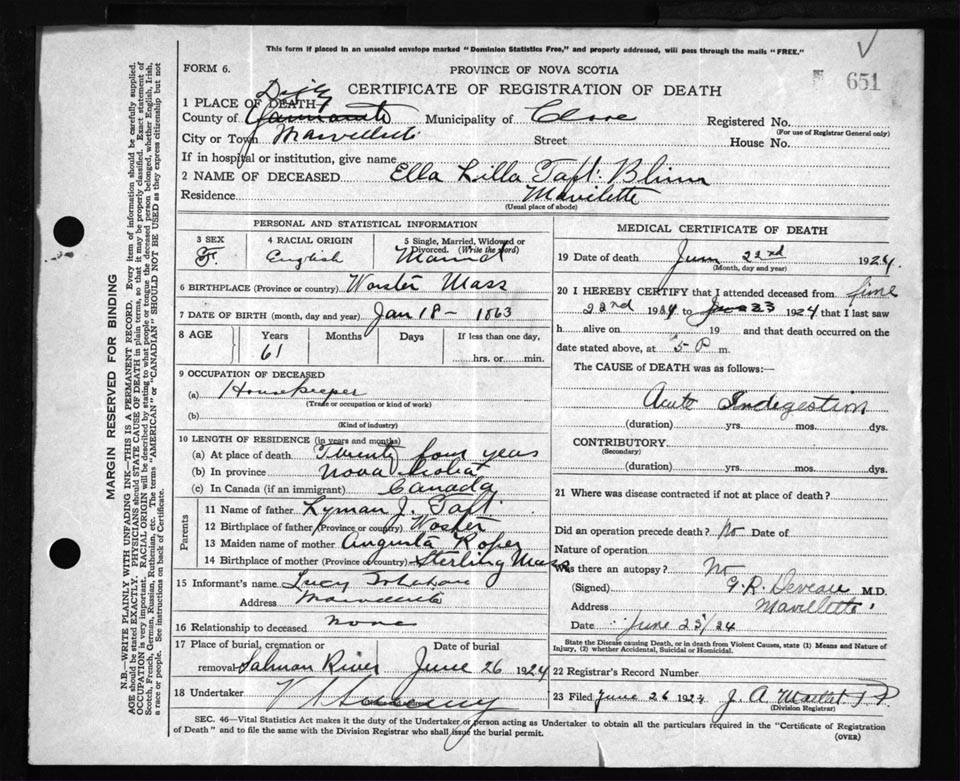 This form if placed in an unsealed envelope marked "Dominion Statistics Free," and properly addressed, will pass through the mails "FREE."
FORM 6.
PROVINCE OF NOVA SCOTIA
651
CERTIFICATE OF REGISTRATION OF DEATH
1 PLACE OF DEATH
Digby
County of Yarmouth Municipality of Clare Registered No.
(For use of Registrar General only)
City or Town Street House No.
If in hospital or institution, give name
2 NAME OF DECEASED Ella Lilla Taft Blinn
Residence Mavilette
(Usual place of abode)
PERSONAL AND STATISTICAL INFORMATION
3 SEX
F.
4 RACIAL ORIGIN
English
5 Single, Married, Widowed or Divorced. (Write the word)
Married
6 BIRTHPLACE (Province or country) Worster Mass
7 DATE OF BIRTH (month, day and year) Jan 18 - 1863
8 AGE
Years
61
Months
Days
If less than one day,
hrs. or min.
9 OCCUPATION OF DECEASED
(a) Housekeeper
(Trade or occupation or kind of work)
(b)
(Kind of industry)
10 LENGTH OF RESIDENCE (in years and months)
(a) At place of death Twenty four years
(b) In province Nova Scotia
(c) In Canada (if an immigrant) Canada
Parents
11 Name of father Lyman J. Taft
12 Birthplace of father (Province or country) Woster
13 Maiden name of mother Augusta Roper
14 Birthplace of mother (Province or country) Sterling Mass
15 Informant's name Lucy
Address
16 Relationship to deceased none
17 Place of burial, cremation or removal Salmon River
Date of burial
June 26 1924
18 Undertaker
MEDICAL CERTIFICATE OF DEATH
19 Date of death June 22nd 1924
(Month, day and year)
20 I HEREBY CERTIFY that I attended deceased from June
22nd 1924 to June 23 1924 that I last saw
h alive on 19 and that death occurred on
date stated above, at 5 P m.
The CAUSE of DEATH was as follows:
Acute Indigestion
(duration) yrs. mos. dys.
CONTRIBUTORY
(Secondary)
(duration) yrs. mos. dys.
21 Where was disease contracted if not at place of death?
Did an operation precede death? No Date of
Nature of operation
Was there an autopsy? No
(Signed) G. R. Deveau M.D.
Address Mavillette
Date June 23/24
State the Disease causing Death, or in death from Violent Causes, state (1) Means and Nature of Injury, (2) whether Accidental, Suicidal or Homicidal.
22 Registrar's Record Number
23 Filed June 26 1924 J. A.
(Division Registrar)
SEC. 46—Vital Statistics Act makes it the duty of the Undertaker or person acting as Undertaker to obtain all the particulars required in the "Certificate of Registration
of Death" and to file the same with the Division Registrar who shall issue the burial permit.
(OVER)
MARGIN RESERVED FOR BINDING
N.B.—WRITE PLAINLY WITH UNFADING INK—THIS IS A PERMANENT RECORD. Every item of information should be carefully supplied.
AGE should be stated EXACTLY. PHYSICIANS should STATE CAUSE OF DEATH in plain terms, so that it may be properly classified. Exact statement of
OCCUPATION is very important. RACIAL ORIGIN will be described by stating to what people or tongue the deceased person belonged, whether English, Irish,
Scotch, French, German, Russian, Ruthenian, etc. The terms "AMERICAN" or "CANADIAN" SHOULD NOT BE USED as they express citizenship but not
a race or people. See instructions on back of Certificate.